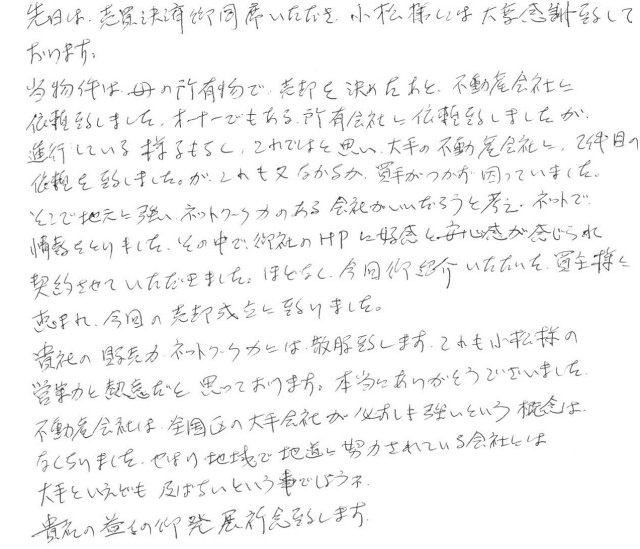 先日は、売買決済御同席いただき、小松様には大変感謝致して
おります。
当物件は、母の所有物で、売却を決めたあと、不動産会社に
依頼致しました。オーナーでもある、所有会社に依頼致しましたが、
進行している様子もなく、これではと思い、大手の不動産会社に、2件目の
依頼を致しました。が、これも又なかなか、買手がつかず困っていました。
そこで地元に強い、ネットワーク力のある会社がいいだろうと考え、ネットで
情報をとりました。その中で、御社のHPに好感と安心感が感じられ
契約させていただきました。ほどなく、今回御紹介いただいた、買主様に
恵まれ、今回の売却成立に至りました。
貴社の販売力、ネットワーク力には、敬服致します。これも小松様の
営業力と熱意だと思っております。本当にありがとうございました。
不動産会社は、全国区の大手会社が必ずしも強いという概念は、
なくなりました。やはり地域で地道に努力されている会社には
大手といえども及ばないという事でしょうネ。
貴社の益々の御発展祈念致します。